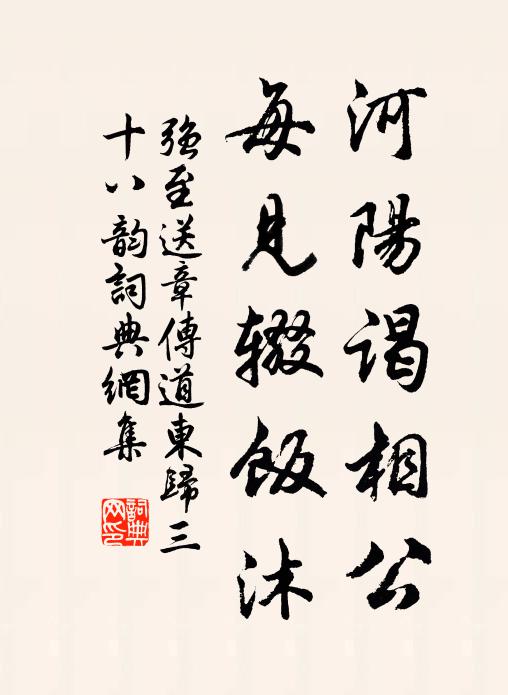 河陽谒相公
每見辍飯沐
強至送章傳道東歸三
十八韵詞典網集
詞典网印